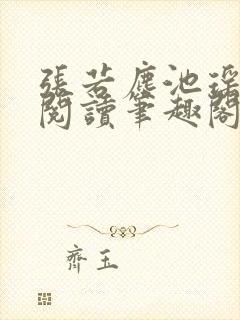 張若塵池瑤
閱讀筆趣閣
齊玉